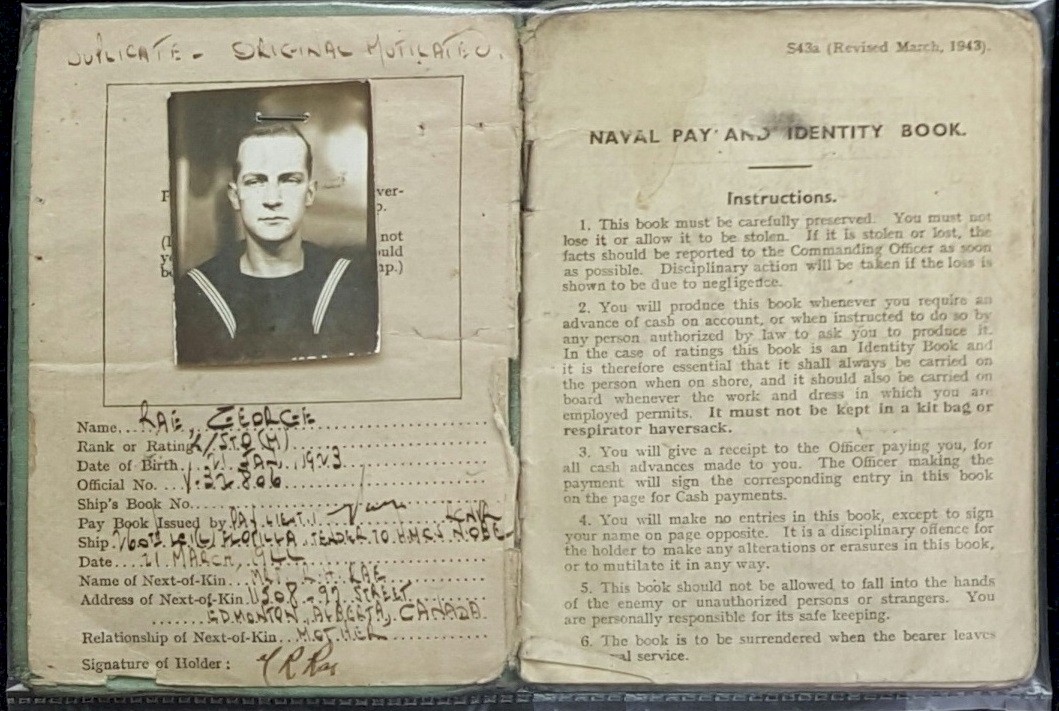 DUPLICATE - ORIGINAL MUTILATED.
ver-
p.
not
ould
mp.)
Name RAE, GEORGE
Rank or Rating /STO (M)
Date of Birth 21 JAN. 1923
Official No. V.32806
Ship's Book No.
Pay Book Issued by PAY. LIEUT. RCNVR
Ship 260TH FLOTILLA, TENDER TO H.M.C.S. NIOBE
Date 21 MARCH, 1944
Name of Next-of-Kin RAE
Address of Next-of-Kin 97 STREET
EDMONTON, ALBERTA, CANADA.
Relationship of Next-of-Kin MOTHER
Signature of Holder: Rae
S43a (Revised March, 1943).
NAVAL PAY AND IDENTITY BOOK.
Instructions.
1. This book must be carefully preserved. You must not
lose it or allow it to be stolen. If it is stolen or lost, the
facts should be reported to the Commanding Officer as soon
as possible. Disciplinary action will be taken if the loss is
shown to be due to negligence.
2. You will produce this book whenever you require an
advance of cash on account, or when instructed to do so by
any person authorized by law to ask you to produce it.
In the case of ratings this book is an Identity Book and
it is therefore essential that it shall always be carried on
the person when on shore, and it should also be carried on
board whenever the work and dress in which you are
employed permits. It must not be kept in a kit bag or
respirator haversack.
3. You will give a receipt to the Officer paying you, for
all cash advances made to you. The Officer making the
payment will sign the corresponding entry in this book
on the page for Cash payments.
4. You will make no entries in this book, except to sign
your name on page opposite. It is a disciplinary offence for
the holder to make any alterations or erasures in this book,
or to mutilate it in any way.
5. This book should not be allowed to fall into the hands
of the enemy or unauthorized persons or strangers. You
are personally responsible for its safe keeping.
6. The book is to be surrendered when the bearer leaves
al service.